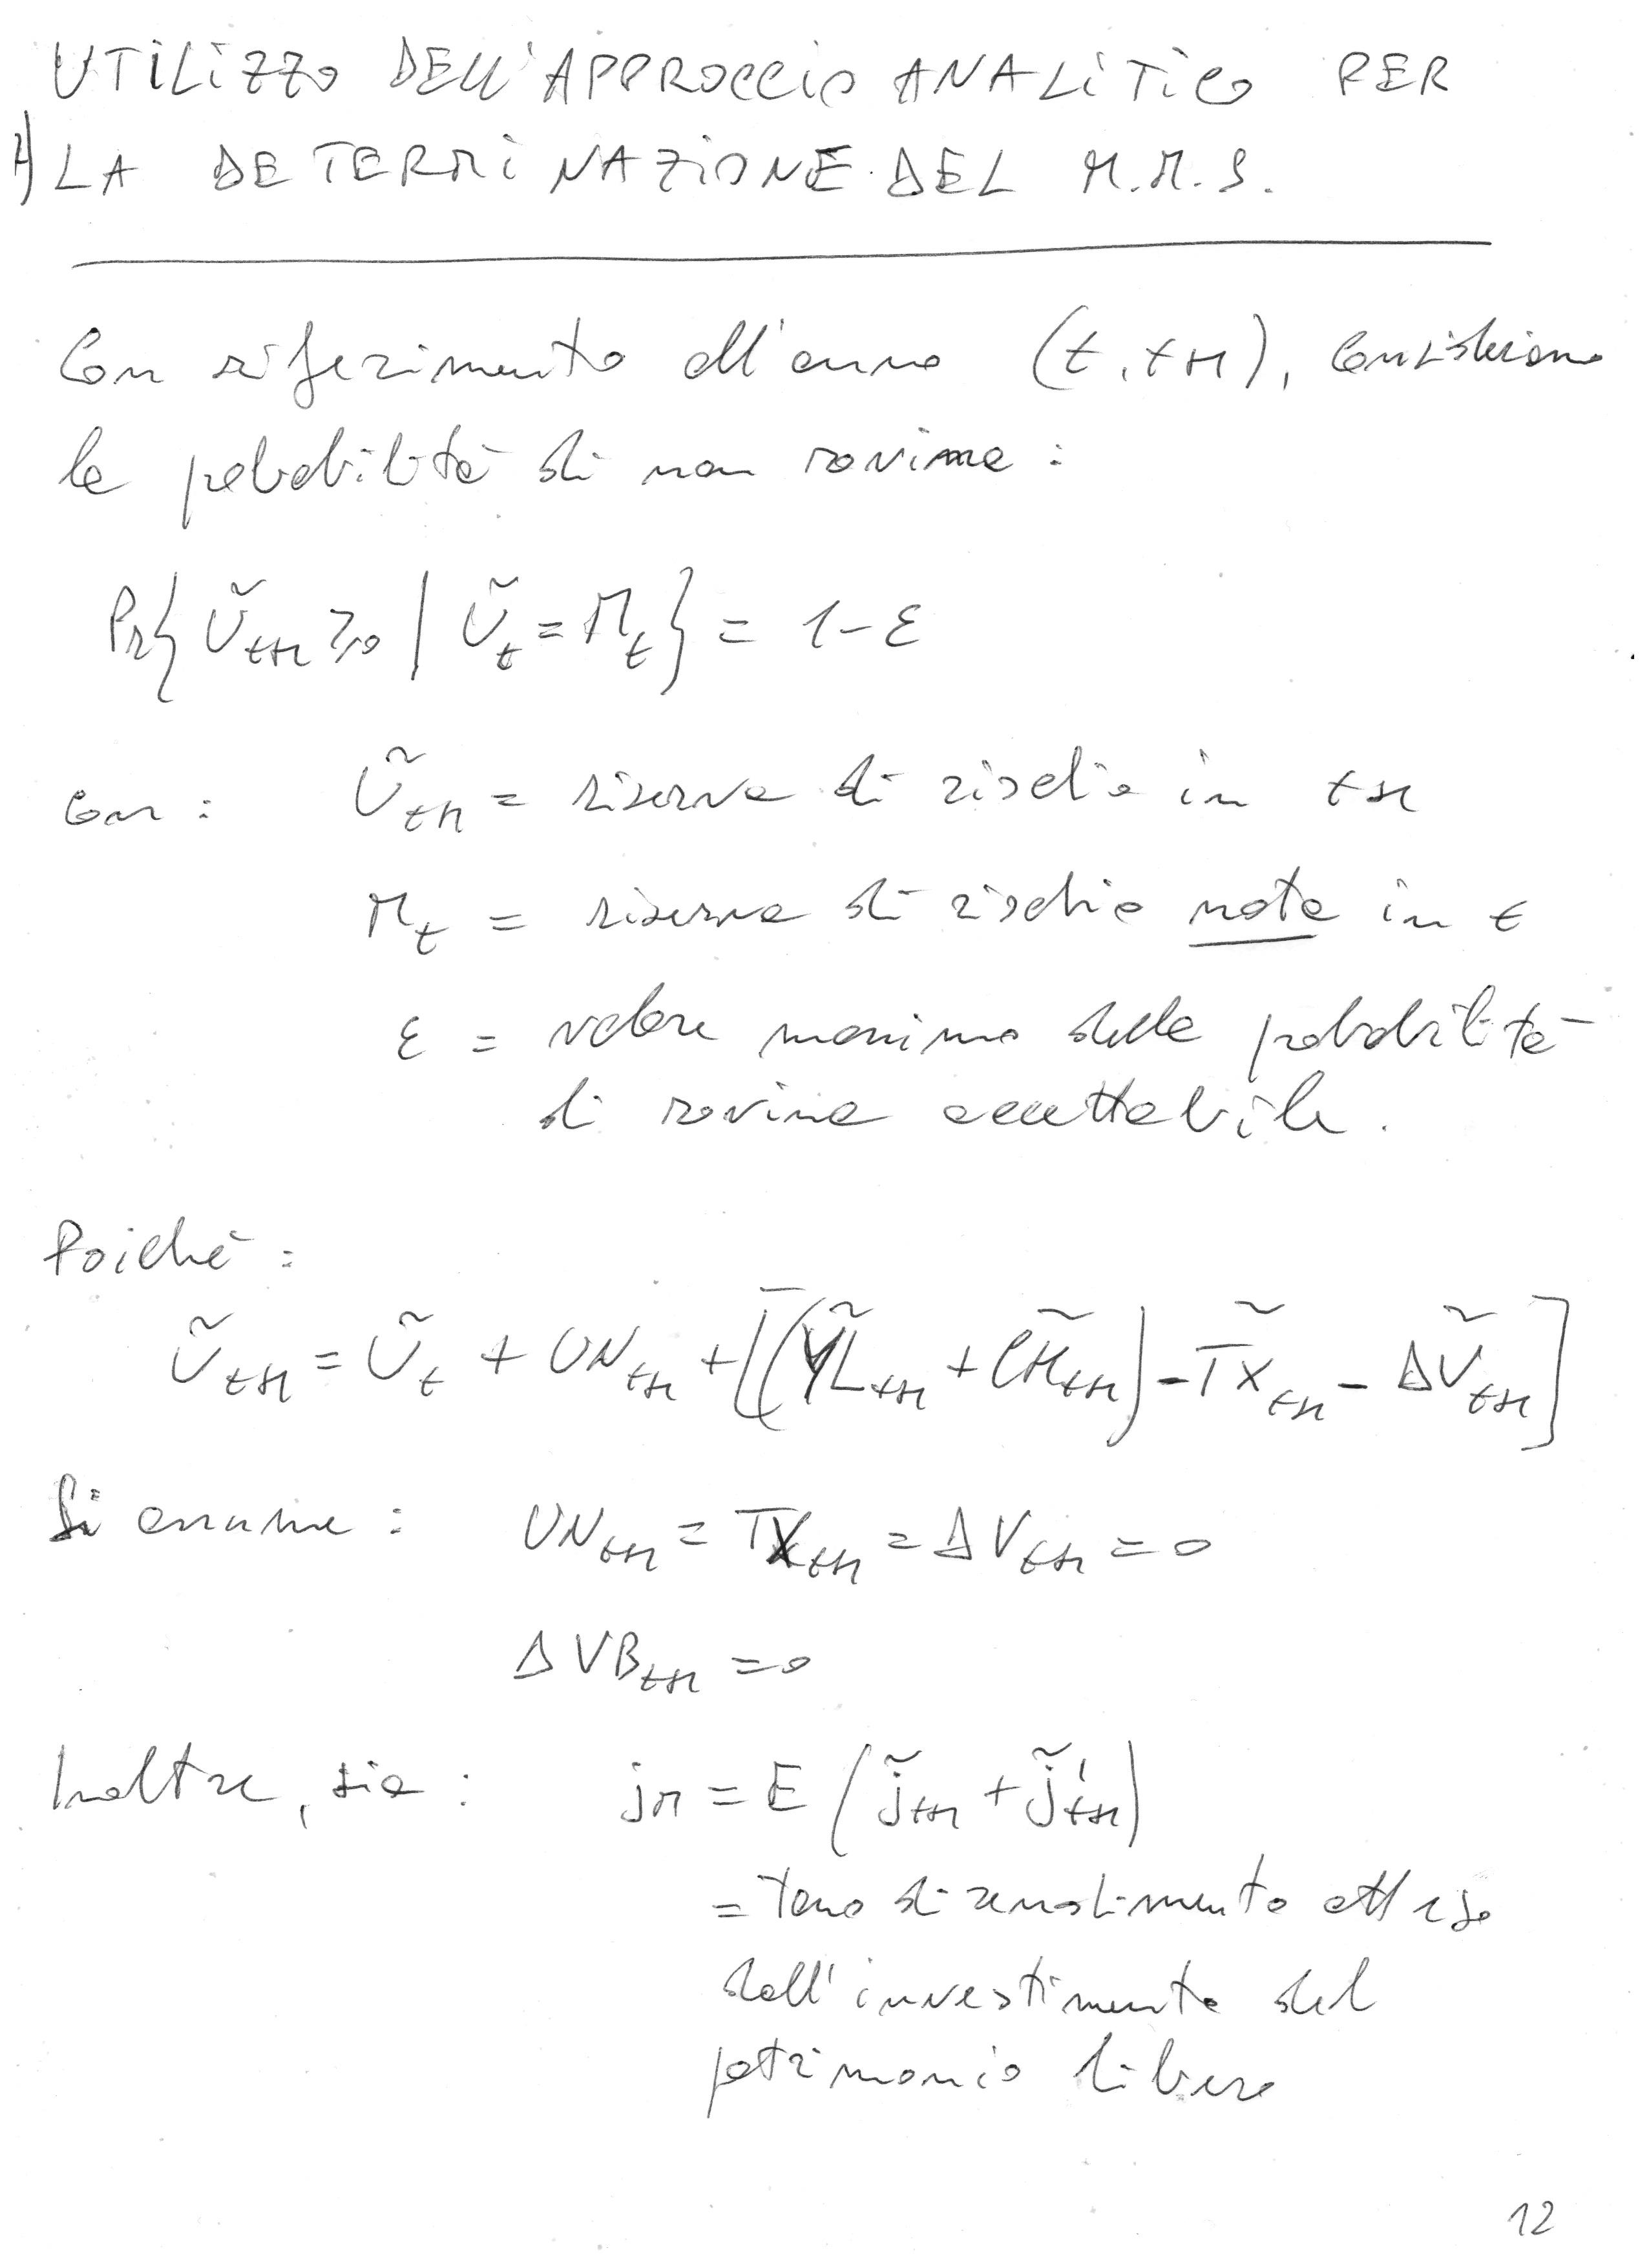 UTILIZZO DELL'APPROCCIO ANALITICO PER
A) LA DETERMINAZIONE DEL M.M.S.
Con riferimento all'anno (t, t+1), consideriamo
la probabilità di non rovina :
Pr{ Ũt+1 ≥ 0 | Ũt = Mt } = 1 - ε
con : Ũt+1 = riserva di rischio in t+1
Mt = riserva di rischio nota in t
ε = valore massimo della probabilità
di rovina accettabile.
Poiché :
Ũt+1 = Ũt + UNt+1 + [(ỸLt+1 + C̃Mt+1) - T̃Xt+1 - ΔṼt+1]
Si assume : UNt+1 = TXt+1 = ΔVt+1 = 0
ΔVBt+1 = 0
Inoltre, sia : jM = E (j̃t+1 + j̃'t+1)
= tasso di rendimento atteso
dall'investimento del
patrimonio libero
12